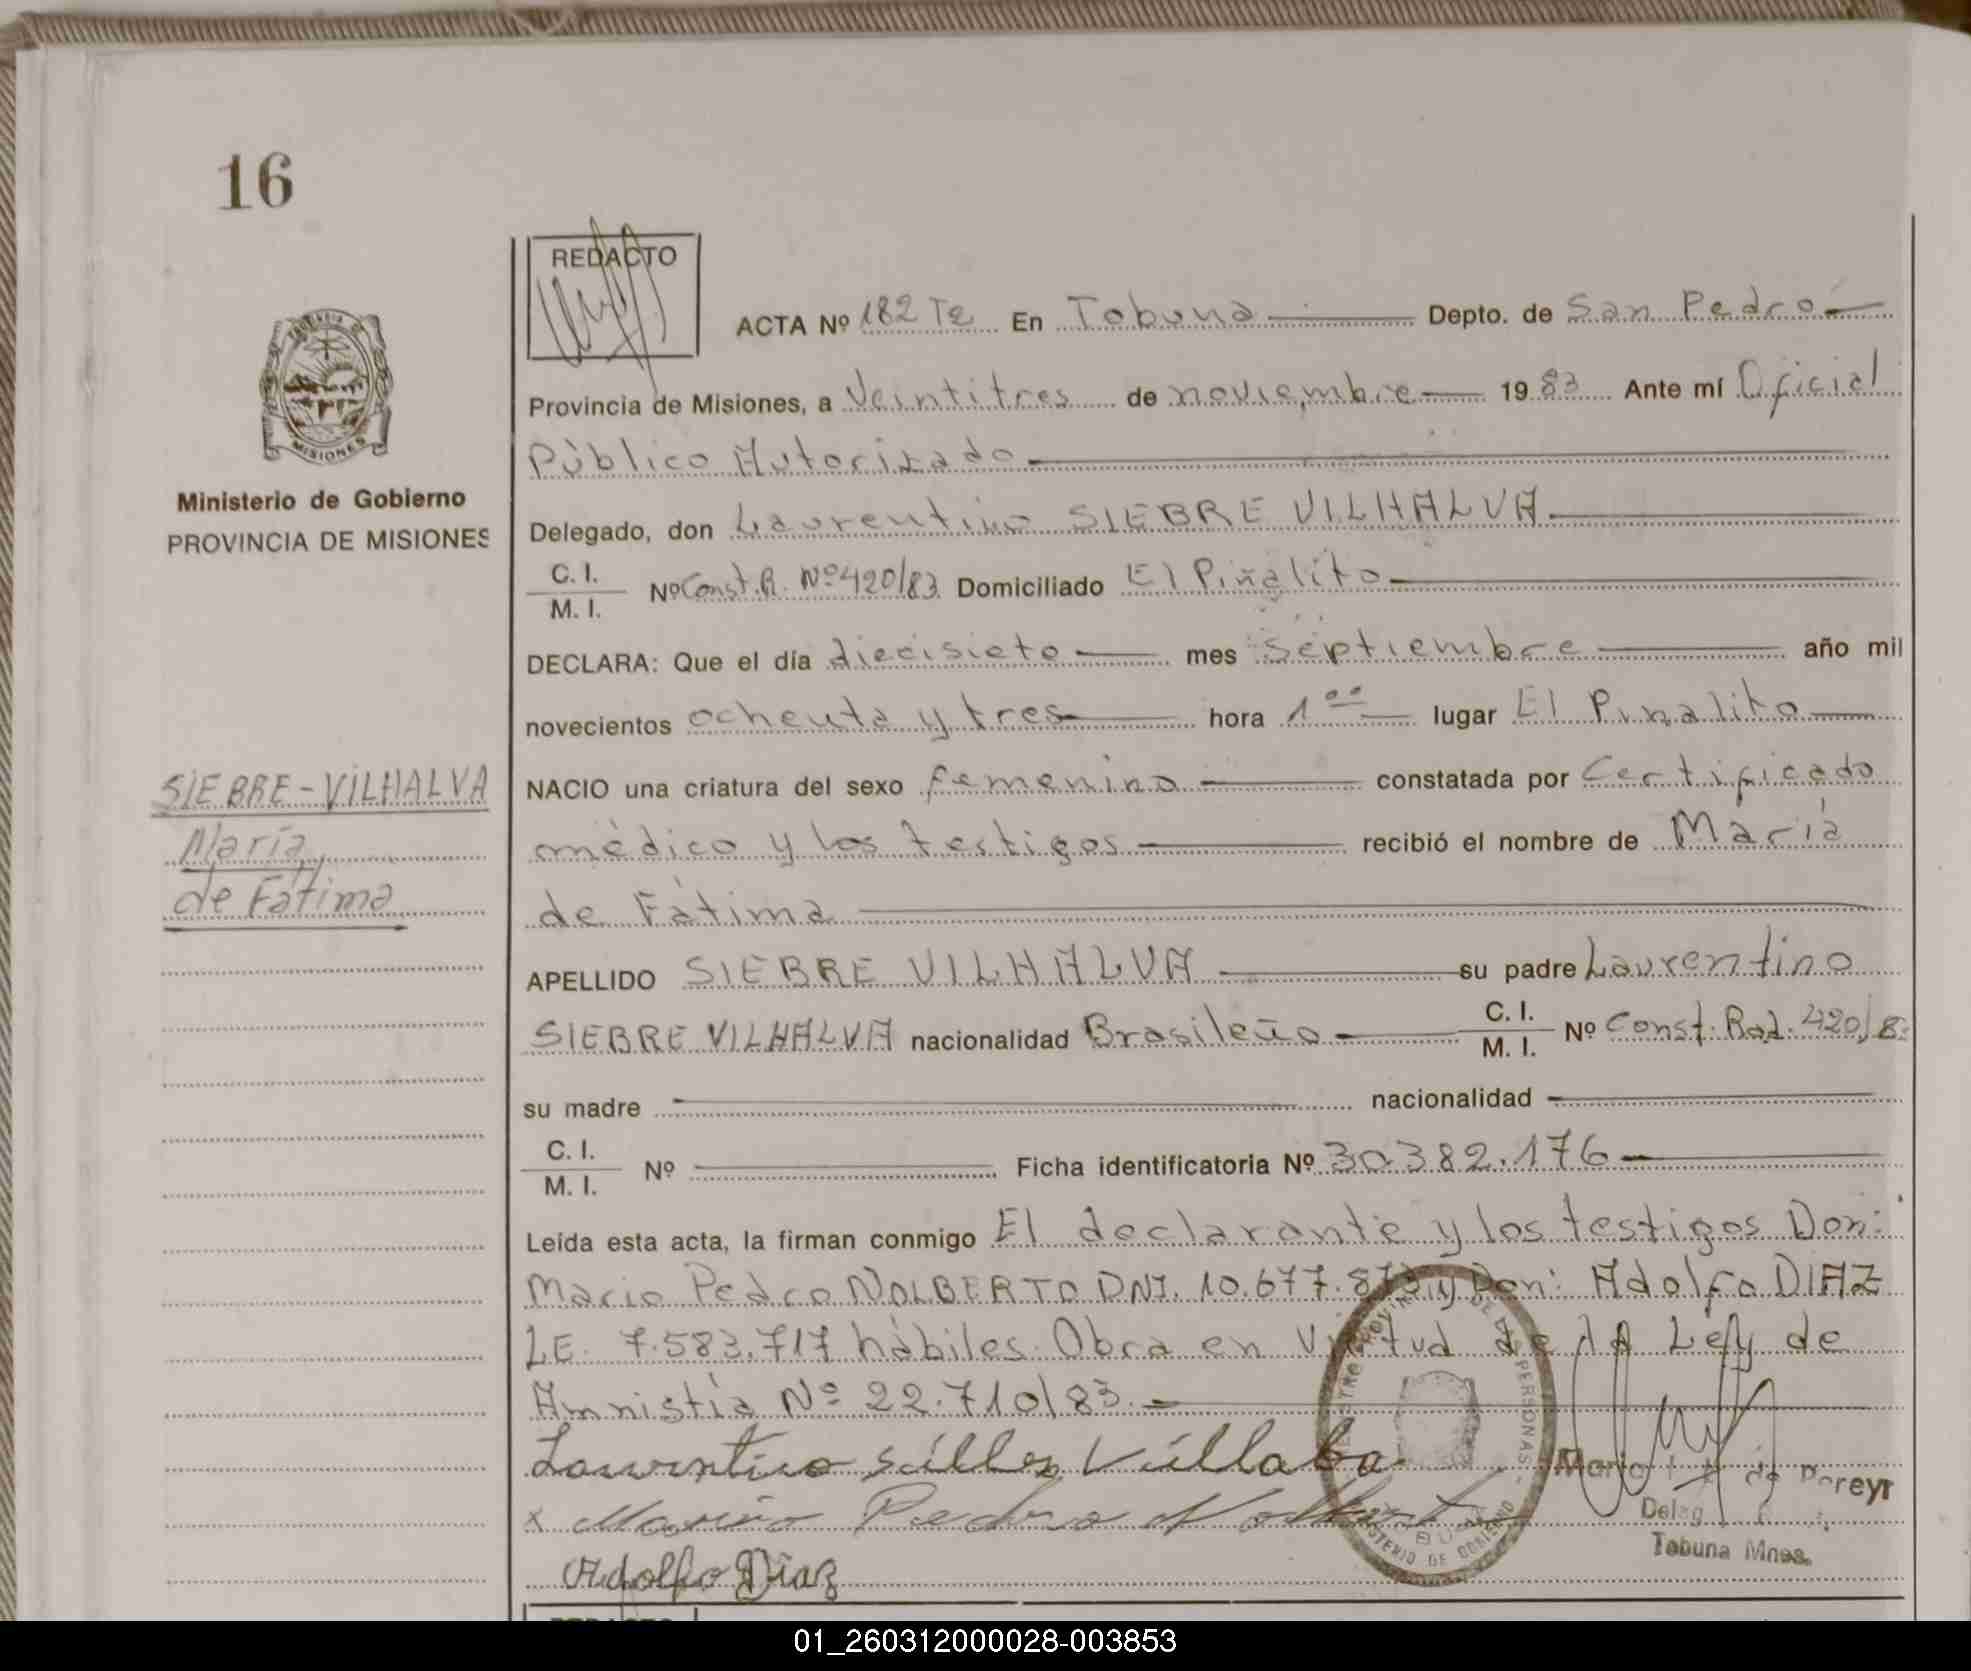 16
REDACTO
ACTA Nº 182 T2 En Tobuna Depto. de San Pedro
Provincia de Misiones, a Veintitres de noviembre 1983 Ante mí Oficial
Público Autorizado
Ministerio de Gobierno
PROVINCIA DE MISIONES
Delegado, don Laurentino SIEBRE VILHALVA
C. I.
M. I. Nº Const.R. Nº420/83 Domiciliado El Piñalito
DECLARA: Que el día diecisiete mes septiembre año mil
novecientos ochenta y tres hora 1ºº lugar El Pinalito
SIEBRE-VILHALVA
María
de Fátima
NACIO una criatura del sexo femenino constatada por Certificado
médico y los testigos recibió el nombre de María
de Fátima
APELLIDO SIEBRE VILHALVA su padre Laurentino
SIEBRE VILHALVA nacionalidad Brasileño C. I. M. I. Nº Const. Rad. 420/8
su madre nacionalidad
C. I.
M. I. Nº Ficha identificatoria Nº 30.382.176
Leída esta acta, la firman conmigo El declarante y los testigos Don:
Mario Pedro NOLBERTO DNI. 10.677.873 y Don: Adolfo DIAZ
LE. 7.583.717 hábiles. Obra en Virtud de lA Ley de
Amnistía Nº 22.710/83.
Laurentino silles Villaba
x Mario Pedro Nolberto
Adolfo Diaz
MINISTERIO DE GOBIERNO
DE LAS PERSONAS
de Pereyr
Tobuna Mnes.
REDACTO
01_260312000028-003853